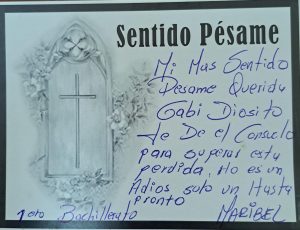 Sentido Pésame
Mi Mas Sentido
Pesame Querida
Gabi Diosito
te De el Consuelo
para superar esta
perdida, No es un
Adios solo un Hasta
pronto
1ero Bachillerato MARIBEL